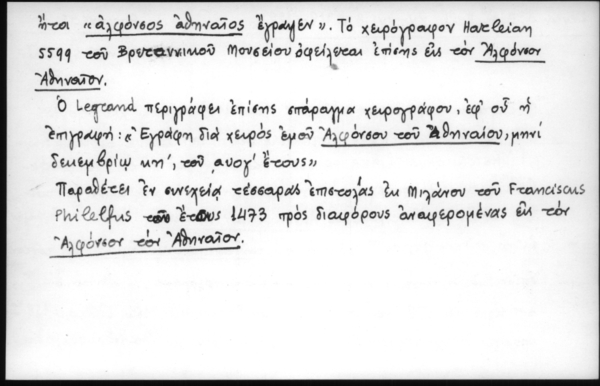 ἤτοι «ἀλφόνσος ἀθηναῖος ἔγραψεν». Τό χειρόγραφον Harleian
5599 τοῦ Βρεταννικοῦ Μουσείου ὀφείλεται ἐπίσης εἰς τόν Ἀλφόνσον
Ἀθηναῖον.
Ὁ Legrand περιγράφει ἐπίσης σπάραγμα χειρογράφου, ἐφ' οὗ ἡ
ἐπιγραφή: «Ἐγράφη διά χειρός ἐμοῦ Ἀλφόνσου τοῦ Ἀθηναίου, μηνί
δεκεμβρίῳ κη', τοῦ ͵αυογ' ἔτους»
Παραθέτει ἐν συνεχείᾳ τέσσαρας ἐπιστολάς ἐκ Μιλάνου τοῦ Franciscus
Philelfus τοῦ ἔτους 1473 πρός διαφόρους ἀναφερομένας εἰς τόν
Ἀλφόνσον τόν Ἀθηναῖον.